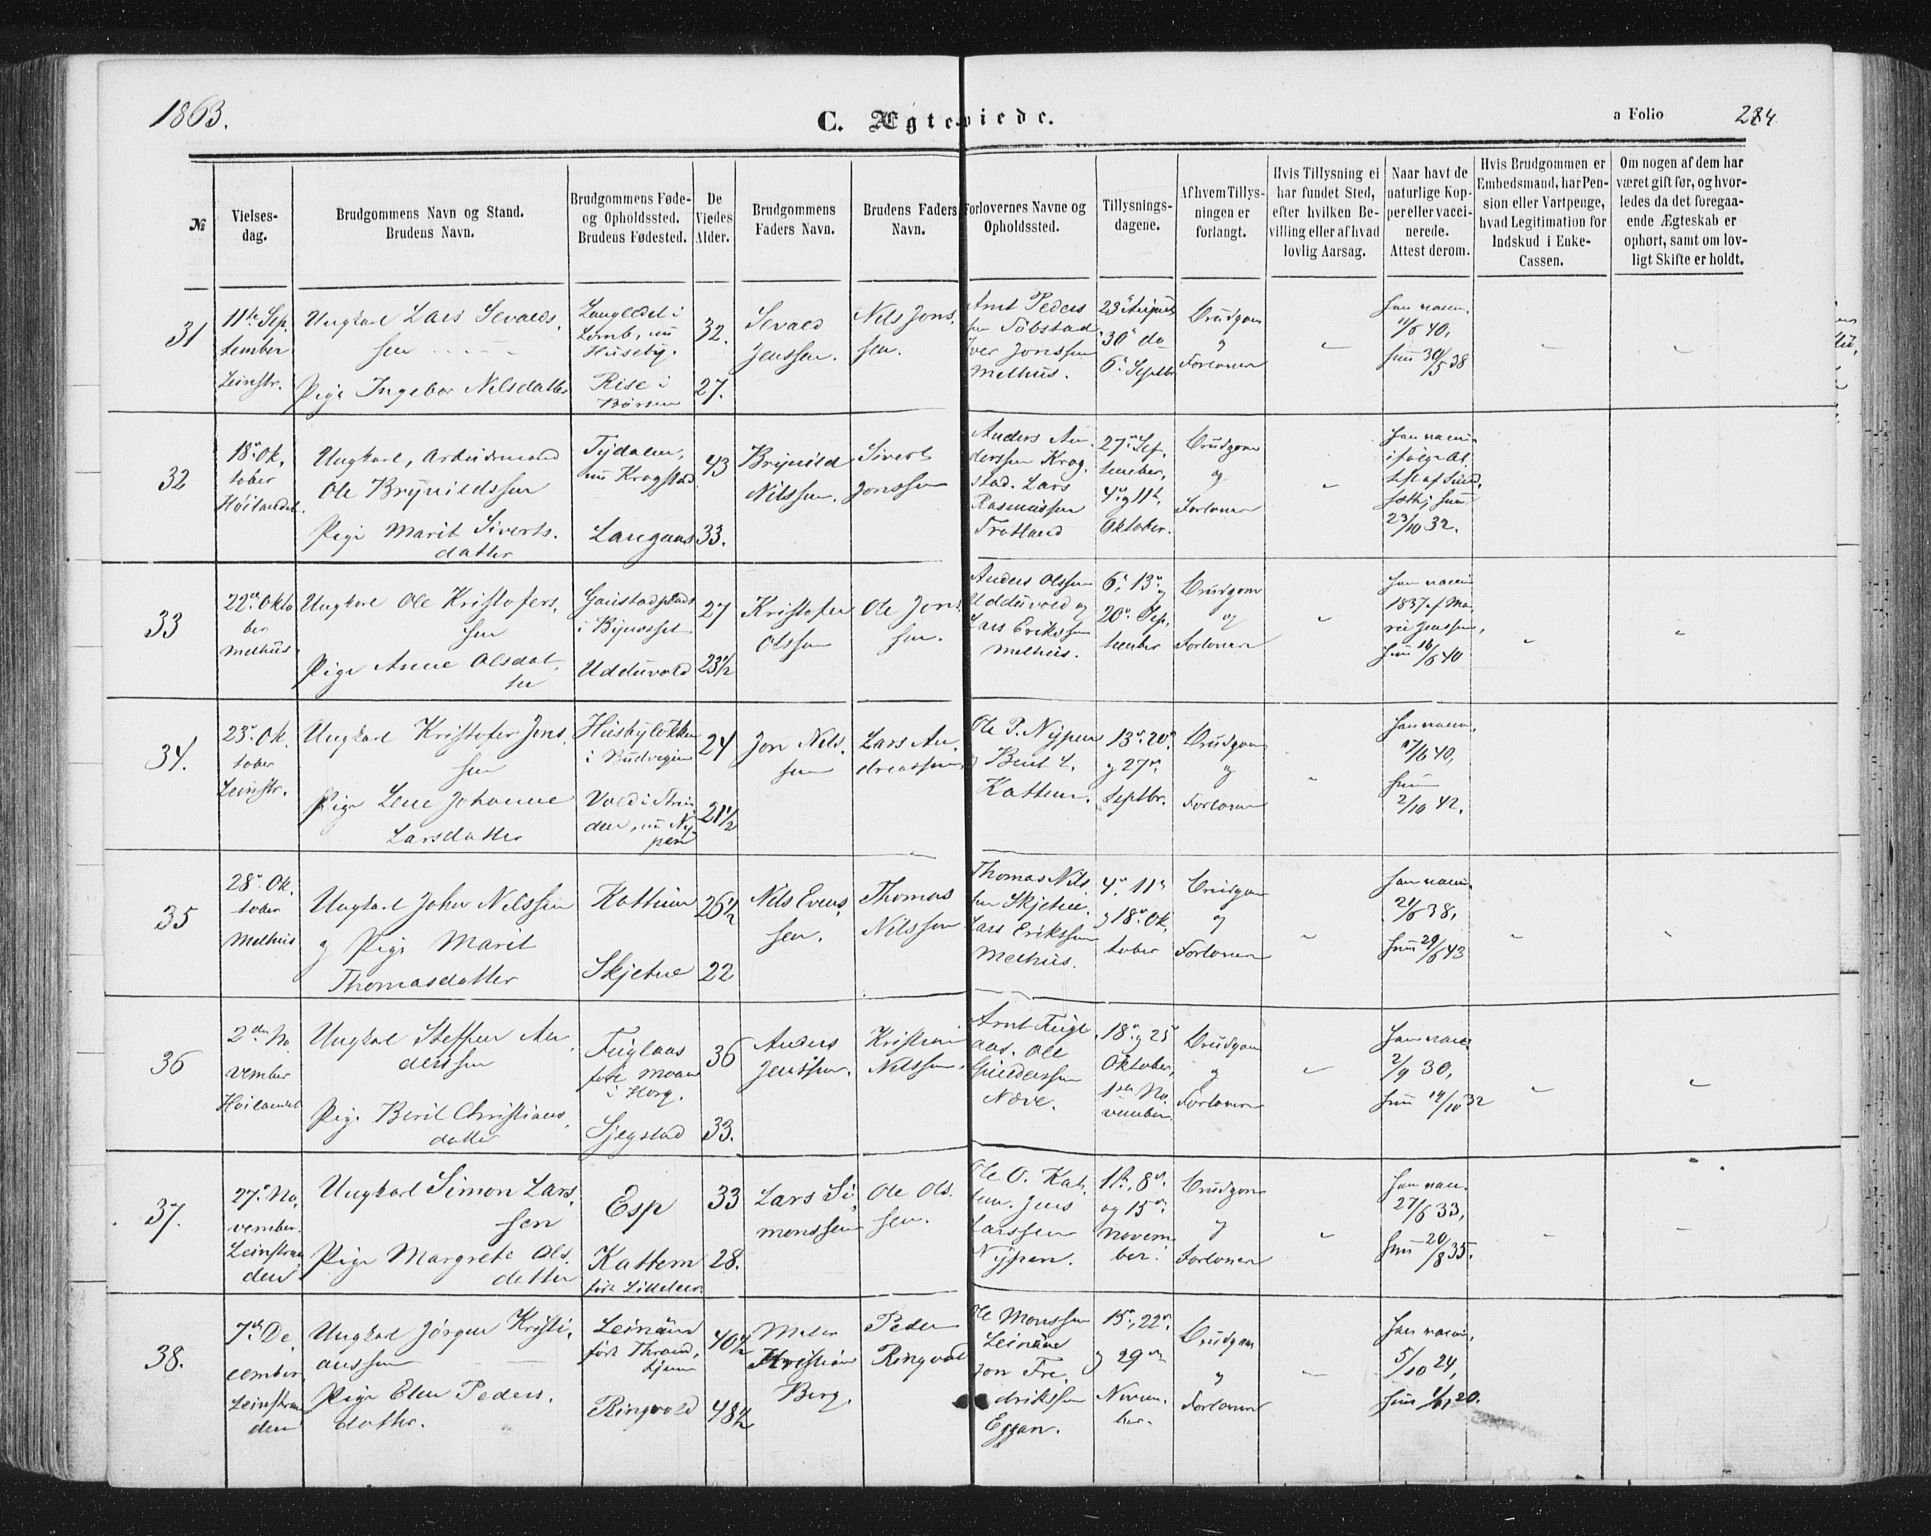 1863.
C. Ægteviede.
a Folio
284
№
Vielses-
dag.
Brudgommens Navn og Stand.
Brudens Navn.
Brudgommens Føde-
og Opholdssted.
Brudens Fødested.
De
Viedes
Alder.
Brudgommens
Faders Navn.
Brudens Faders
Navn.
Forlovernes Navne og
Opholdssted.
Tillysnings-
dagene.
Af hvem Tillys-
ningen er
forlangt.
Hvis Tillysning ei
har fundet Sted,
efter hvilken Be-
villing eller af hvad
lovlig Aarsag.
Naar havt de
naturlige Kop-
per eller vacci-
nerede.
Attest derom.
Hvis Brudgommen er
Embedsmand, har Pen-
sion eller Vartpenge,
hvad Legitimation for
Indskud i Enke-
Cassen.
Om nogen af dem har
været gift før, og hvor-
ledes da det foregaa-
ende Ægteskab er
ophørt, samt om lov-
ligt Skifte er holdt.
31
11te Sep,
tember
Leinstr.
Ungkarl Lars Sevalds,
sen
Pige Ingebor Nilsdatter
Lomb, nu
Huseby.
Rise i
Børsen
32.
27.
Sevald
Jenssen.
Nils Jons,
sen.
Arnt Peders
sen Töbstad
Iver Jonssen
Melhus.
23de August
30te do
6te Septbr
Brudgom
og
Forlover
han vaccin.
11/6 40,
hun 30/5 38
32
18de Ok,
tober
Höilandet.
Ungkarl, Arbeidsmand
Ole Brynildssen
Pige Marit Siverts,
datter
Tydalen,
nu Krogstad
Langaas
43
33.
Brynild
Nilssen
Sivert
Jonssen
Anders An,
derssen Krog,
stad. Lars
Rasmussen
Trötland
27de Sep,
tember,
4de og 11te
Oktober.
Brudgom
og
Forlover
han vaccin
ifölge At,
test af
hun
23/10 32.
33
22de Okto
ber
Melhus
Ungkarl Ole Kristofers,
sen
Pige Anne Olsdat,
ter
Gaustadplads
i Bynesset
Udduvold
27
23 1/2
Kristofer
Olssen
Ole Jons,
sen.
Anders Olssen
Udduvold og
Lars Erikssen
Melhus.
6te, 13de og
20de Sep,
tember
Brudgom
og
Forlover
han vaccin
1837 af Ma,
rie Jenssen,
hun 16/6 40
34.
23de Ok,
tober
Leinstr.
Ungkarl Kristofer Jons,
sen
Pige Lene Johanne
Larsdatter
Husbylökken
i Budvigen
Vold i Strin
den, nu Ny,
pen
24
21 1/2
Jon Nils,
sen
Lars An,
dreassen,
Ole P. Nypen
og Bent L.
Kattem.
13de, 20de
og 27de
Septbr.
Brudgom
og
Forlover
han vaccin.
17/6 40,
hun
2/10 42.
35
28de Ok,
tober
Melhus
Ungkarl John Nilssen
og Pige Marit
Thomasdatter
Kattem
Skjetne
26 1/2
22
Nils Evens,
sen.
Thomas
Nilssen
Thomas Nils,
sen Skjetne.
Lars Erikssen
Melhus.
4de, 11te
og 18de Ok,
tober
Brudgom
og
Forlover
han vaccin.
21/6 38,
hun 29/6 43
36
2den No
vember
Höilandet
Ungkarl Steffen An,
derssen
Pige Berit Christians,
datter
Fuglaas
födt Moan
i Horg.
Sjegstad
36
33.
Anders
Jenssen.
Kristian
Nilssen.
Arnt Fugl
aas. Ole
Gundersen
Næve.
18de og 25de
Oktober,
1ste No,
vember.
Brudgom
og
Forlover
han vacc.
2/9 30,
hun 14/10 32
37.
27de No,
vember.
Leinstran
den
Ungkarl Simon Lars,
sen
Pige Margrete Ols,
datter
Esp
Kattem
33
28.
Lars Si,
monssen
Ole Ols,
sen.
Ole O. Kat,
tem. Jens
Larssen
Nypen.
1ste, 8de
og 15de
Novem
ber.
Brudgom
og
Forlover
han vacc.
27/6 33,
hun 20/8 35.
38.
7de De
cember
Leinstran
den
Ungkarl Jörgen Kristi,
anssen
Pige Elen Peders,
datter.
Leinöen
födt Thrond,
hjem
Ringvold
40 1/2
48 1/2
Kristian
Berg.
Peder
Ringvold
Ole Monssen
Leinöen
Jon Fre,
drikssen
Eggan.
15de, 22de
og 29de
Novem
ber.
Brudgom
og
Forlover
han vaccin.
5/10 24,